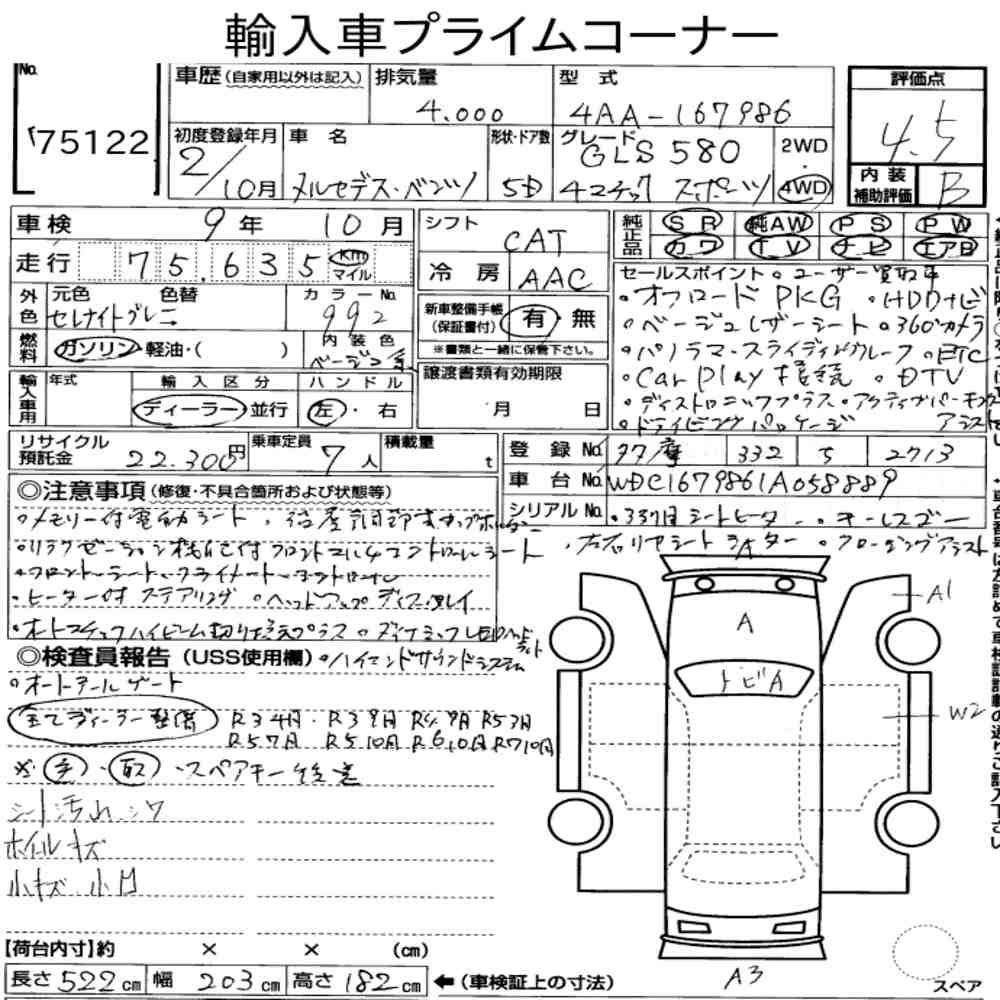 輸入車プライムコーナー
No.
75122
車歴(自家用以外は記入)
排気量
4.000
型式
4AA-167986
評価点
4.5
初度登録年月
2/10月
車名
メルセデス・ベンツ
形状・ドア数
5D
グレード
GLS 580
4マチック スポーツ
2WD
・
4WD
内装
補助評価
B
車検 9年 10月
走行 75.635 km マイル
シフト
CAT
冷房 AAC
純正品
SR 純AW PS PW
カワ TV ナビ エアB
外色
元色 色替
セレナイトグレー
カラーNo.
992
新車整備手帳
(保証書付)
有・無
※書類と一緒に保管下さい。
燃料
ガソリン・軽油・( )
内装色
ベージュ系
セールスポイント 。ユーザー買取車
。オフロードPKG 。HDDナビ
。ベージュレザーシート 。360°カメラ
。パノラマ・スライディングルーフ 。ETC
。Car Play 接続 。DTV
。ディストロニックプラス 。アクティブパーキング
アシスト
。ドライビングパッケージ
輸入車用
年式
輸入区分
ディーラー・並行
ハンドル
左・右
譲渡書類有効期限
月 日
リサイクル
預託金
22.300円
乗車定員
7人
積載量
t
登録No. 多摩 332 ち 2713
車台No. WDC1679861A058889
シリアルNo. 。3列目シートヒーター 。キーレスゴー
◎注意事項(修復・不具合箇所および状態等)
。メモリー付電動シート
。フロントシート・クライメートコントロール
。ヒーター付ステアリング 。ヘッドアップディスプレイ
。オートマチックハイビーム切り替えプラス 。ダイナミックLEDヘッドライト
◎検査員報告(USS使用欄) 。ハイエンドサウンドシステム
。オートテールゲート
全てディーラー整備 R3 4月・R3 9月 R4.9月 R5 3月
R5 7月 R5 10月 R6 10月 R7 10月
※ 手・取・スペアキー後送
シート汚れ シワ
ホイルキズ
小キズ 小凹
A
A
トビA
A1
W2
A3
スペア
【荷台内寸】約 × × (cm)
長さ 522 cm 幅 203 cm 高さ 182 cm ←(車検証上の寸法)